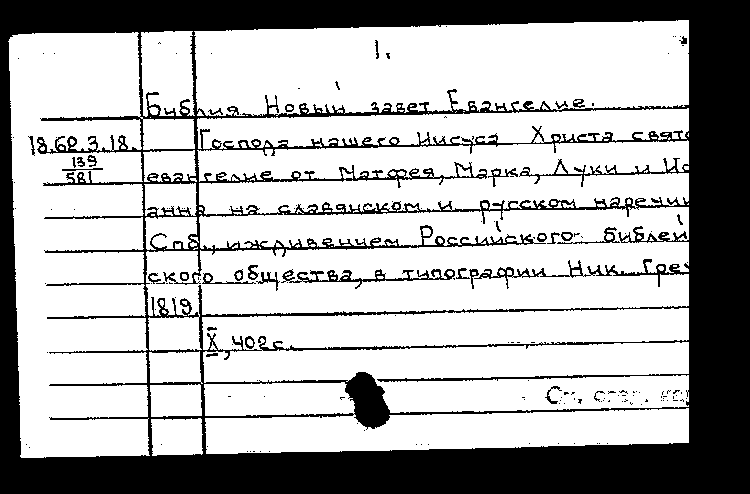 1.
Библия Новый завет Евангелие.
18.62.3.18. Господа нашего Иисуса Христа свято
139
581
евангелие от Матфея, Марка, Луки и Ио
анна на славянском и русском наречии
Спб., иждивением Российского библей
ского общества, в типографии Ник. Греч
1819.
X, 402 с.
См. след.